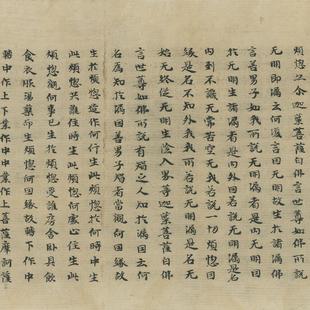 煩惱迦葉菩薩白佛言世尊如佛所說
无明即漏云何復言因无明故生於諸漏佛
言善男子如我所說无明漏者是內无明因
於无明生諸漏者是內外因若說无明漏是名
內到不識无常苦空无我若說一切煩惱因
緣是名不知外我我所若說无明漏是名无
始无終從无明生陰入界等迦葉菩薩白佛
言世尊如佛所說有智之人知於漏因云何
名為知於漏因善男子智者當觀何因緣故
生於煩惱造作何行生此煩惱於何時中生
此煩惱共誰住時生此煩惱何處止住生此
煩惱觀何事已生於煩惱受誰房舍臥具飲
食衣服湯藥而生煩惱何因緣故轉下作中
轉中作上下業作中中業作上菩薩摩訶薩